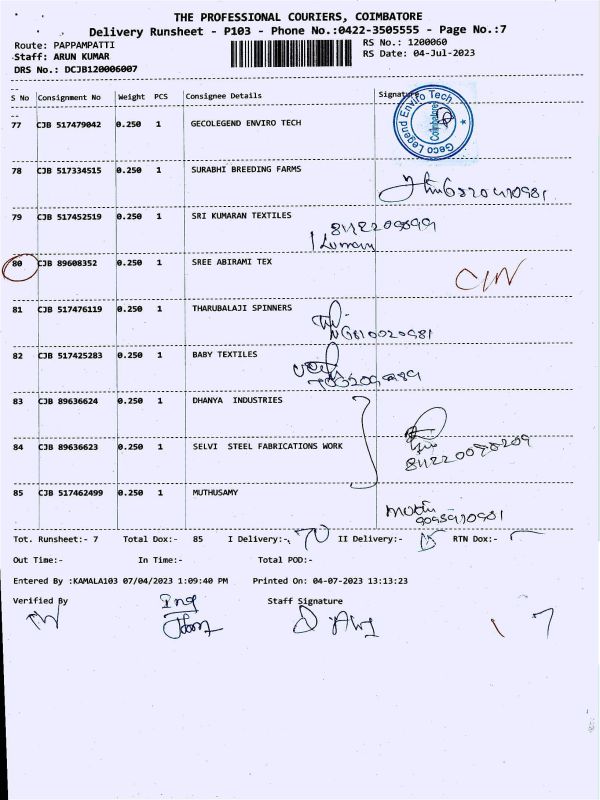 THE PROFESSIONAL COURIERS, COIMBATORE
Delivery Runsheet - P103 - Phone No.:0422-3505555 - Page No.:7
Route: PAPPAMPATTI RS No.: 1200060
Staff: ARUN KUMAR RS Date: 04-Jul-2023
DRS No.: DCJB120006007
S No Consignment No Weight PCS Consignee Details Signature
77 CJB 517479042 0.250 1 GECOLEGEND ENVIRO TECH
Geco Legend Enviro Tech Coimbatore
78 CJB 517334515 0.250 1 SURABHI BREEDING FARMS
79 CJB 517452519 0.250 1 SRI KUMARAN TEXTILES
80 CJB 89608352 0.250 1 SREE ABIRAMI TEX
81 CJB 517476119 0.250 1 THARUBALAJI SPINNERS
82 CJB 517425283 0.250 1 BABY TEXTILES
83 CJB 89636624 0.250 1 DHANYA INDUSTRIES
84 CJB 89636623 0.250 1 SELVI STEEL FABRICATIONS WORK
85 CJB 517462499 0.250 1 MUTHUSAMY
Tot. Runsheet:- 7 Total Dox:- 85 I Delivery:- 70 II Delivery:- 15 RTN Dox:-
Out Time:- In Time:- Total POD:-
Entered By :KAMALA103 07/04/2023 1:09:40 PM Printed On: 04-07-2023 13:13:23
Verified By Staff Signature
7